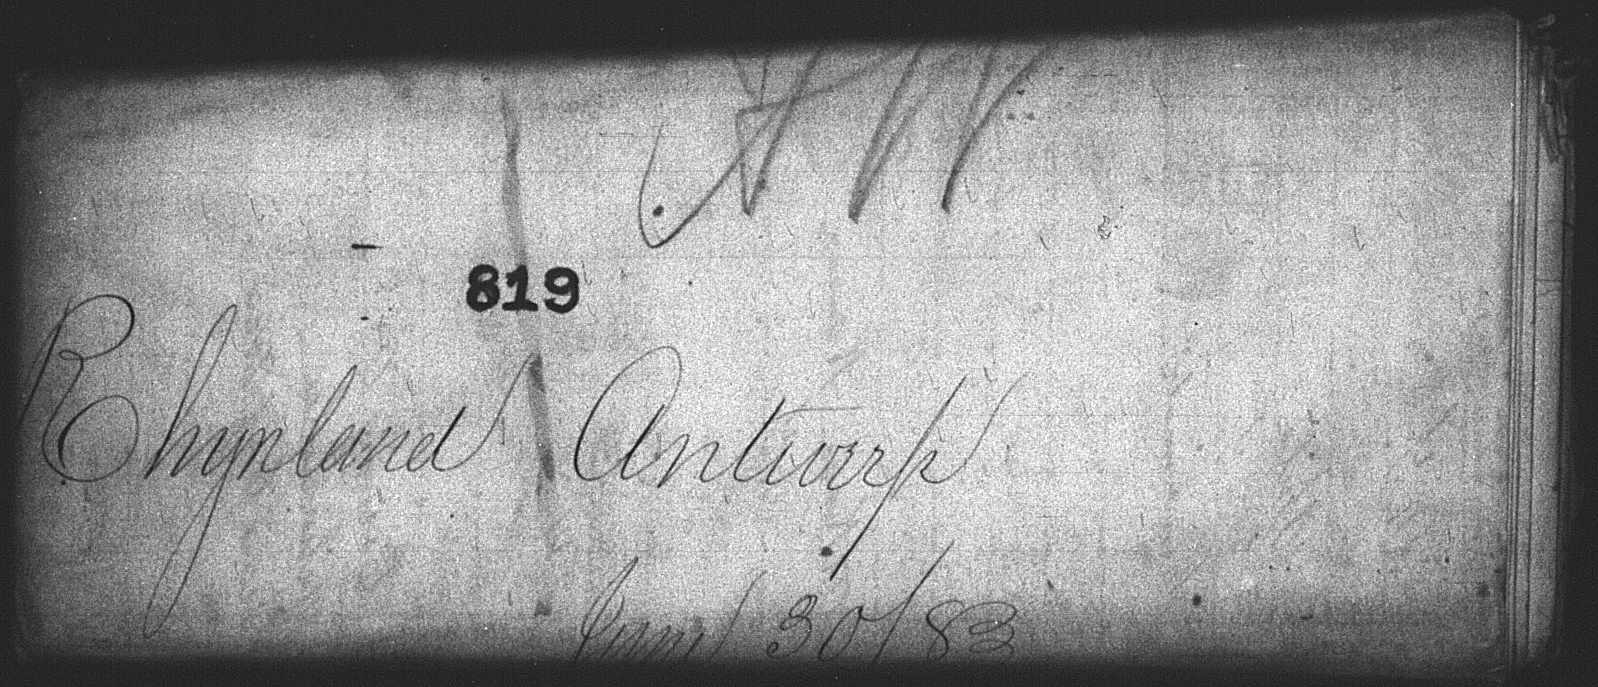 819
Rhynland Antwerp
June 30/83